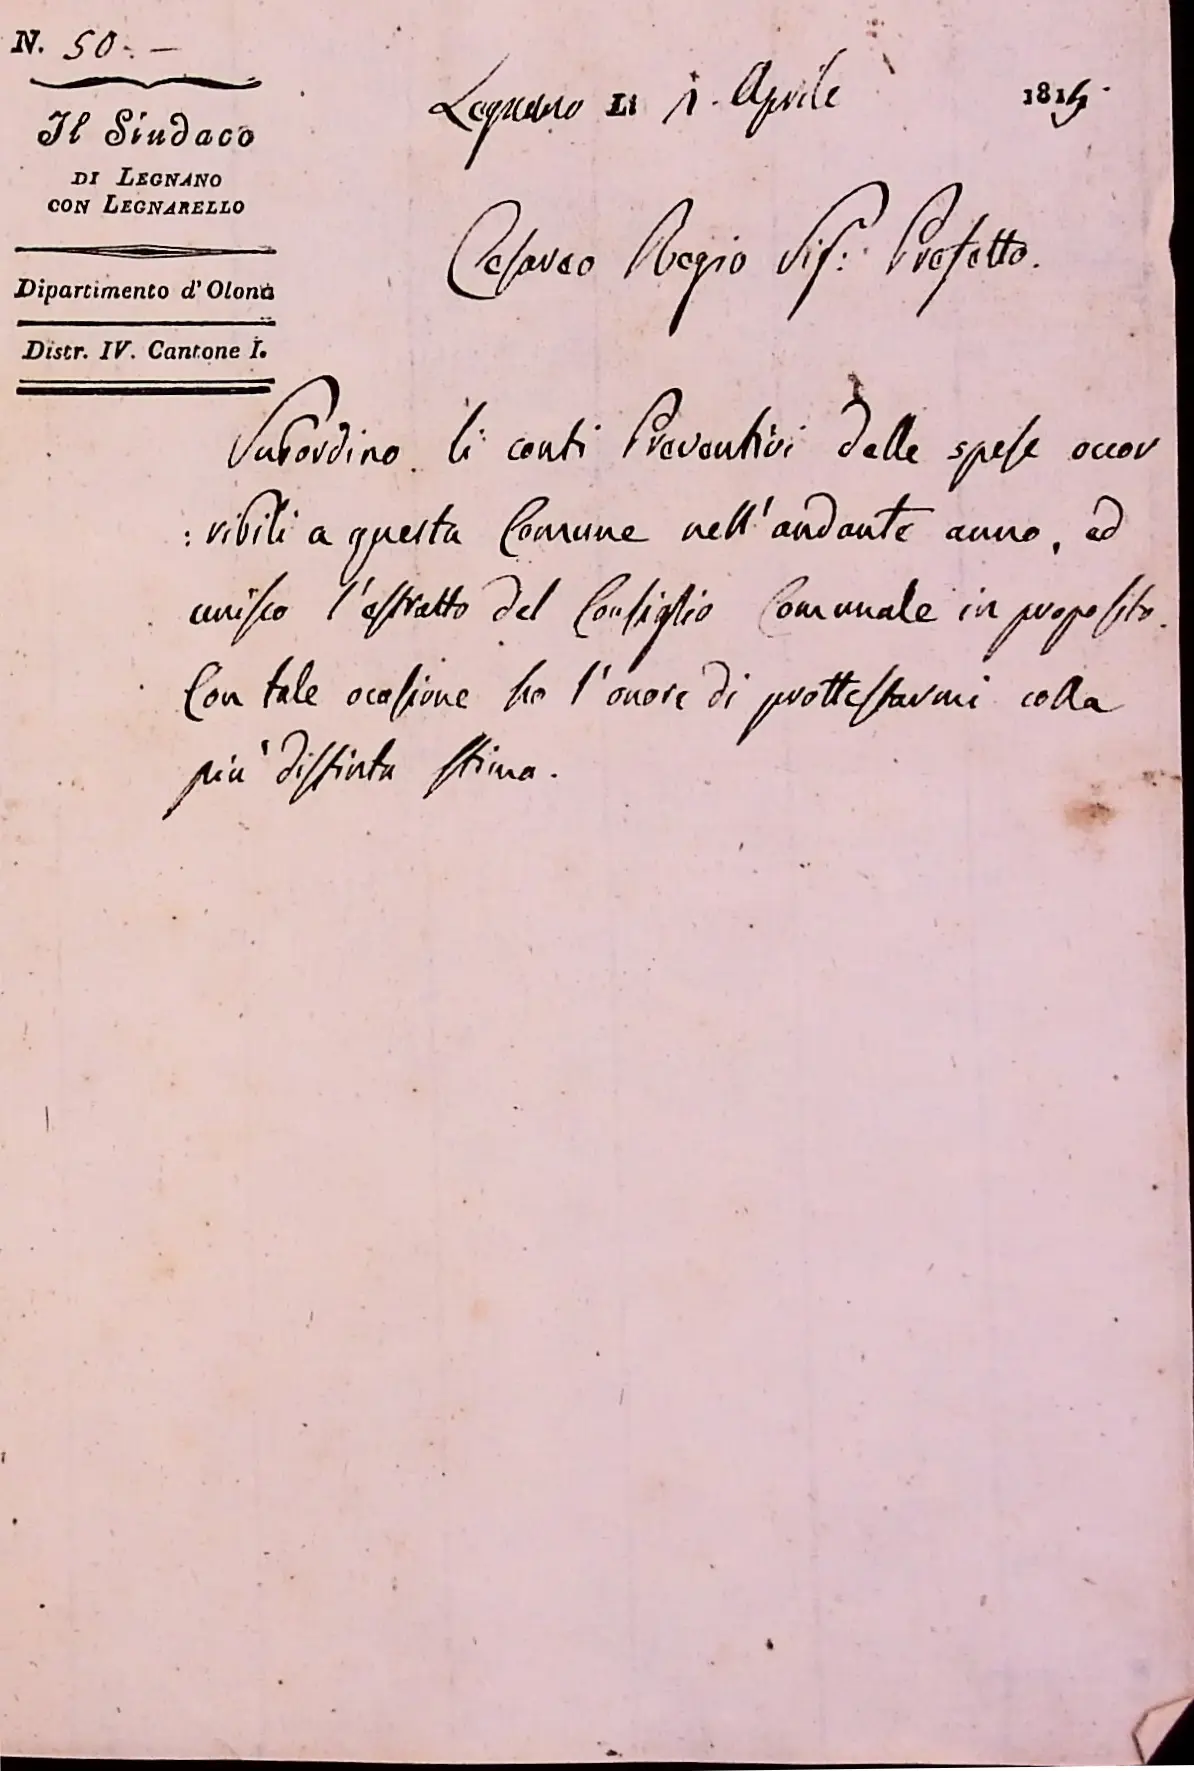 N. 50. —
Il Sindaco
DI LEGNANO
CON LEGNARELLO
Dipartimento d' Olona
Distr. IV. Cantone I.
Legnano LI 1. Aprile 1815
Cesareo Regio Sig.: Prefetto.
Subordino li conti Preventivi delle spese occor
: ribili a questa Comune nell' andante anno, ed
unisco l' estratto del Consiglio Comunale in proposito.
Con tale ocasione ho l' onore di prottestarmi colla
più distinta stima.